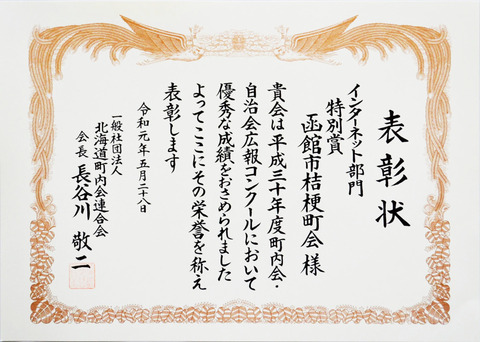 表彰状
インターネット部門
特別賞
函館市桔梗町会 様
貴会は平成三十年度町内会・
自治会広報コンクールにおいて
優秀な成績をおさめられました
よってここにその栄誉を称え
表彰します
令和元年五月二十八日
一般社団法人
北海道町内会連合会
会長 長谷川 敬二